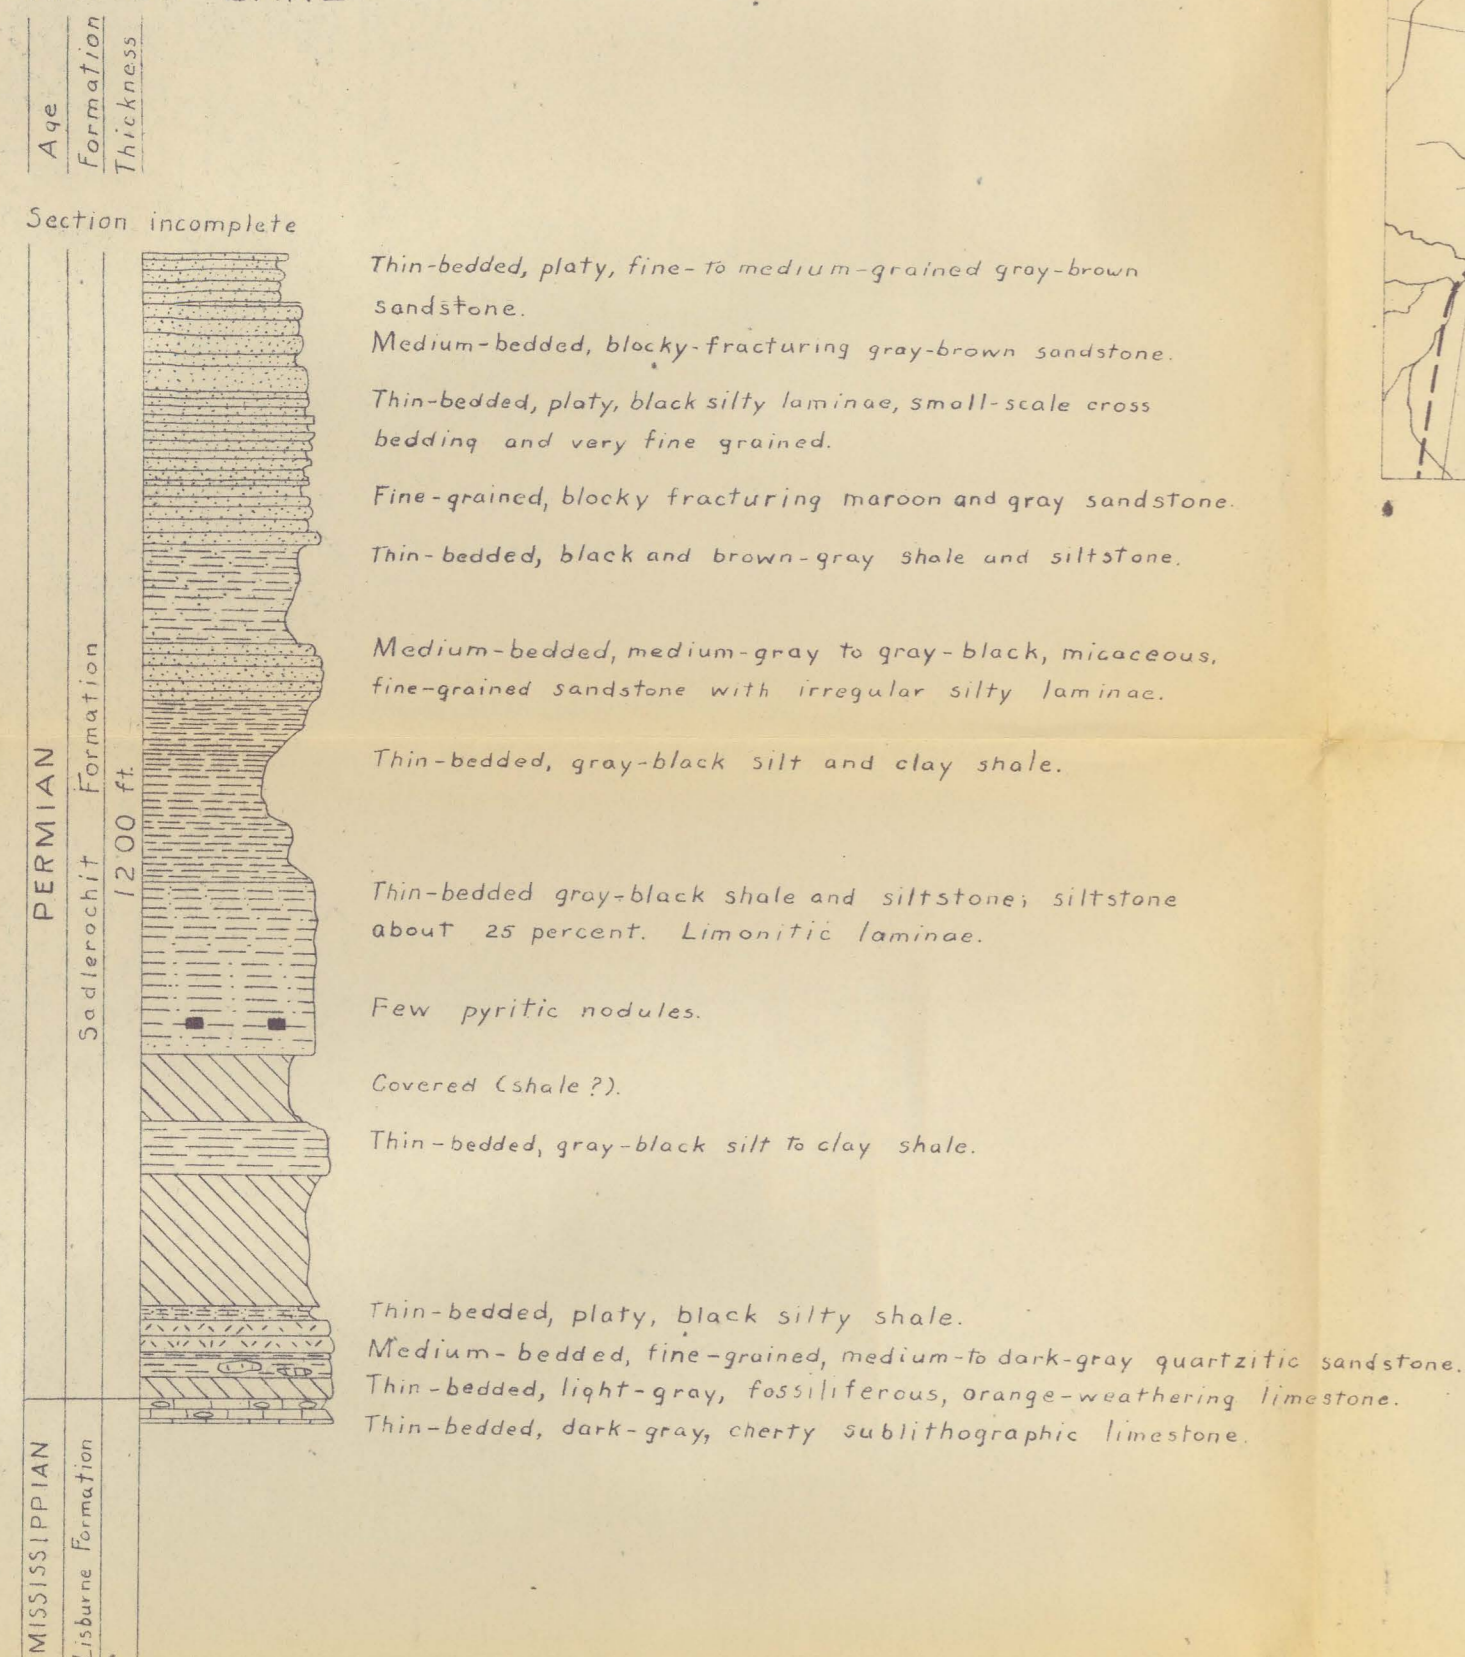 Age
Formation
Thickness
Section incomplete
PERMIAN
Sadlerochit Formation
1200 ft.
Thin-bedded, platy, fine- to medium-grained gray-brown
sandstone.
Medium-bedded, blocky-fracturing gray-brown sandstone.
Thin-bedded, platy, black silty laminae, small-scale cross
bedding and very fine grained.
Fine-grained, blocky fracturing maroon and gray sandstone.
Thin-bedded, black and brown-gray shale and siltstone.
Medium-bedded, medium-gray to gray-black, micaceous,
fine-grained sandstone with irregular silty laminae.
Thin-bedded, gray-black silt and clay shale.
Thin-bedded gray-black shale and siltstone; siltstone
about 25 percent. Limonitic laminae.
Few pyritic nodules.
Covered (shale?).
Thin-bedded, gray-black silt to clay shale.
Thin-bedded, platy, black silty shale.
Medium-bedded, fine-grained, medium-to dark-gray quartzitic sandstone.
Thin-bedded, light-gray, fossiliferous, orange-weathering limestone.
Thin-bedded, dark-gray, cherty sublithographic limestone.
MISSISSIPPIAN
Lisburne Formation